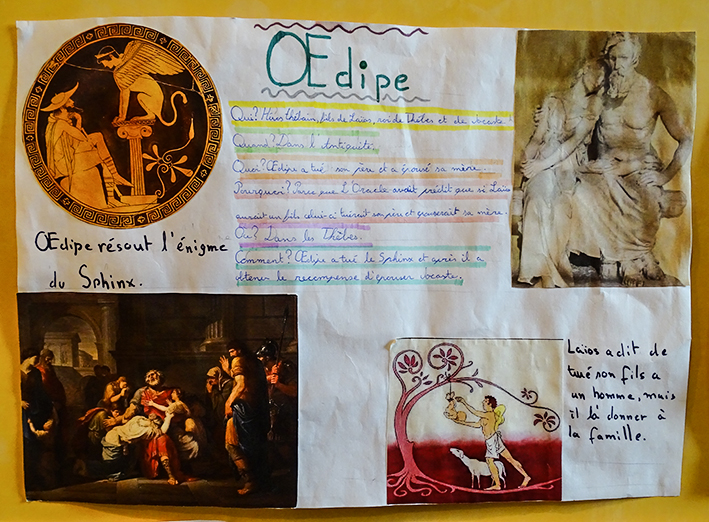 Œdipe
Qui? Héros thébain, fils de Laïos, roi de Thèbes et de Jocaste.
Quand? Dans l'Antiquité.
Quoi? Œdipe a tué son père et a épousé sa mère.
Pourquoi? Parce que L'Oracle avait prédit que si Laïos
aurait un fils celui-ci tuerait son père et épouserait sa mère.
Où? Dans les Thèbes.
Comment? Œdipe a tué le Sphinx et après il a
obtenu la recompense d'épouser Jocaste.
Œdipe résout l'énigme
du Sphinx.
Laïos a dit de
tué son fils a
un homme, mais
il là donner à
la famille.